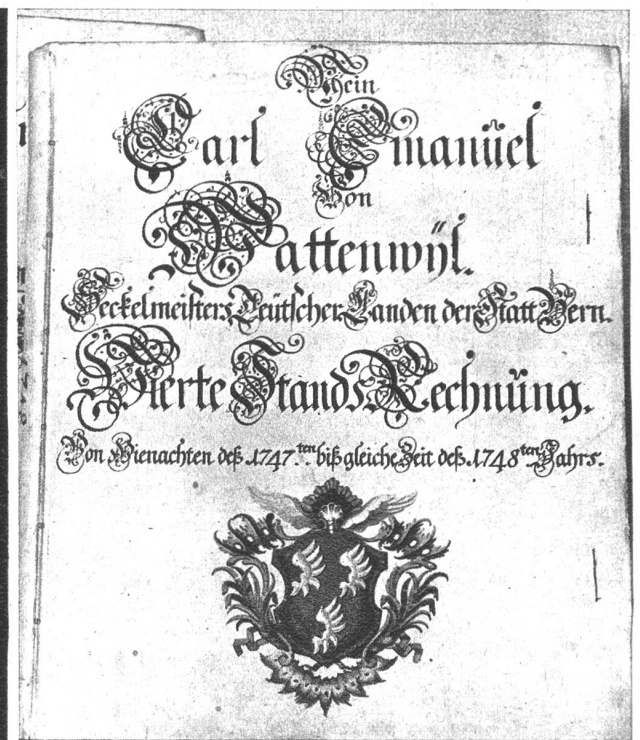 Mein
Carl Emanüel
Von
Wattenwÿl.
Seckelmeisters Teütscher Landen der Statt Bern.
Vierte Stands Rechnüng.
Von Wienachten deß 1747.ten biß gleiche Zeit deß 1748ten Jahrs.